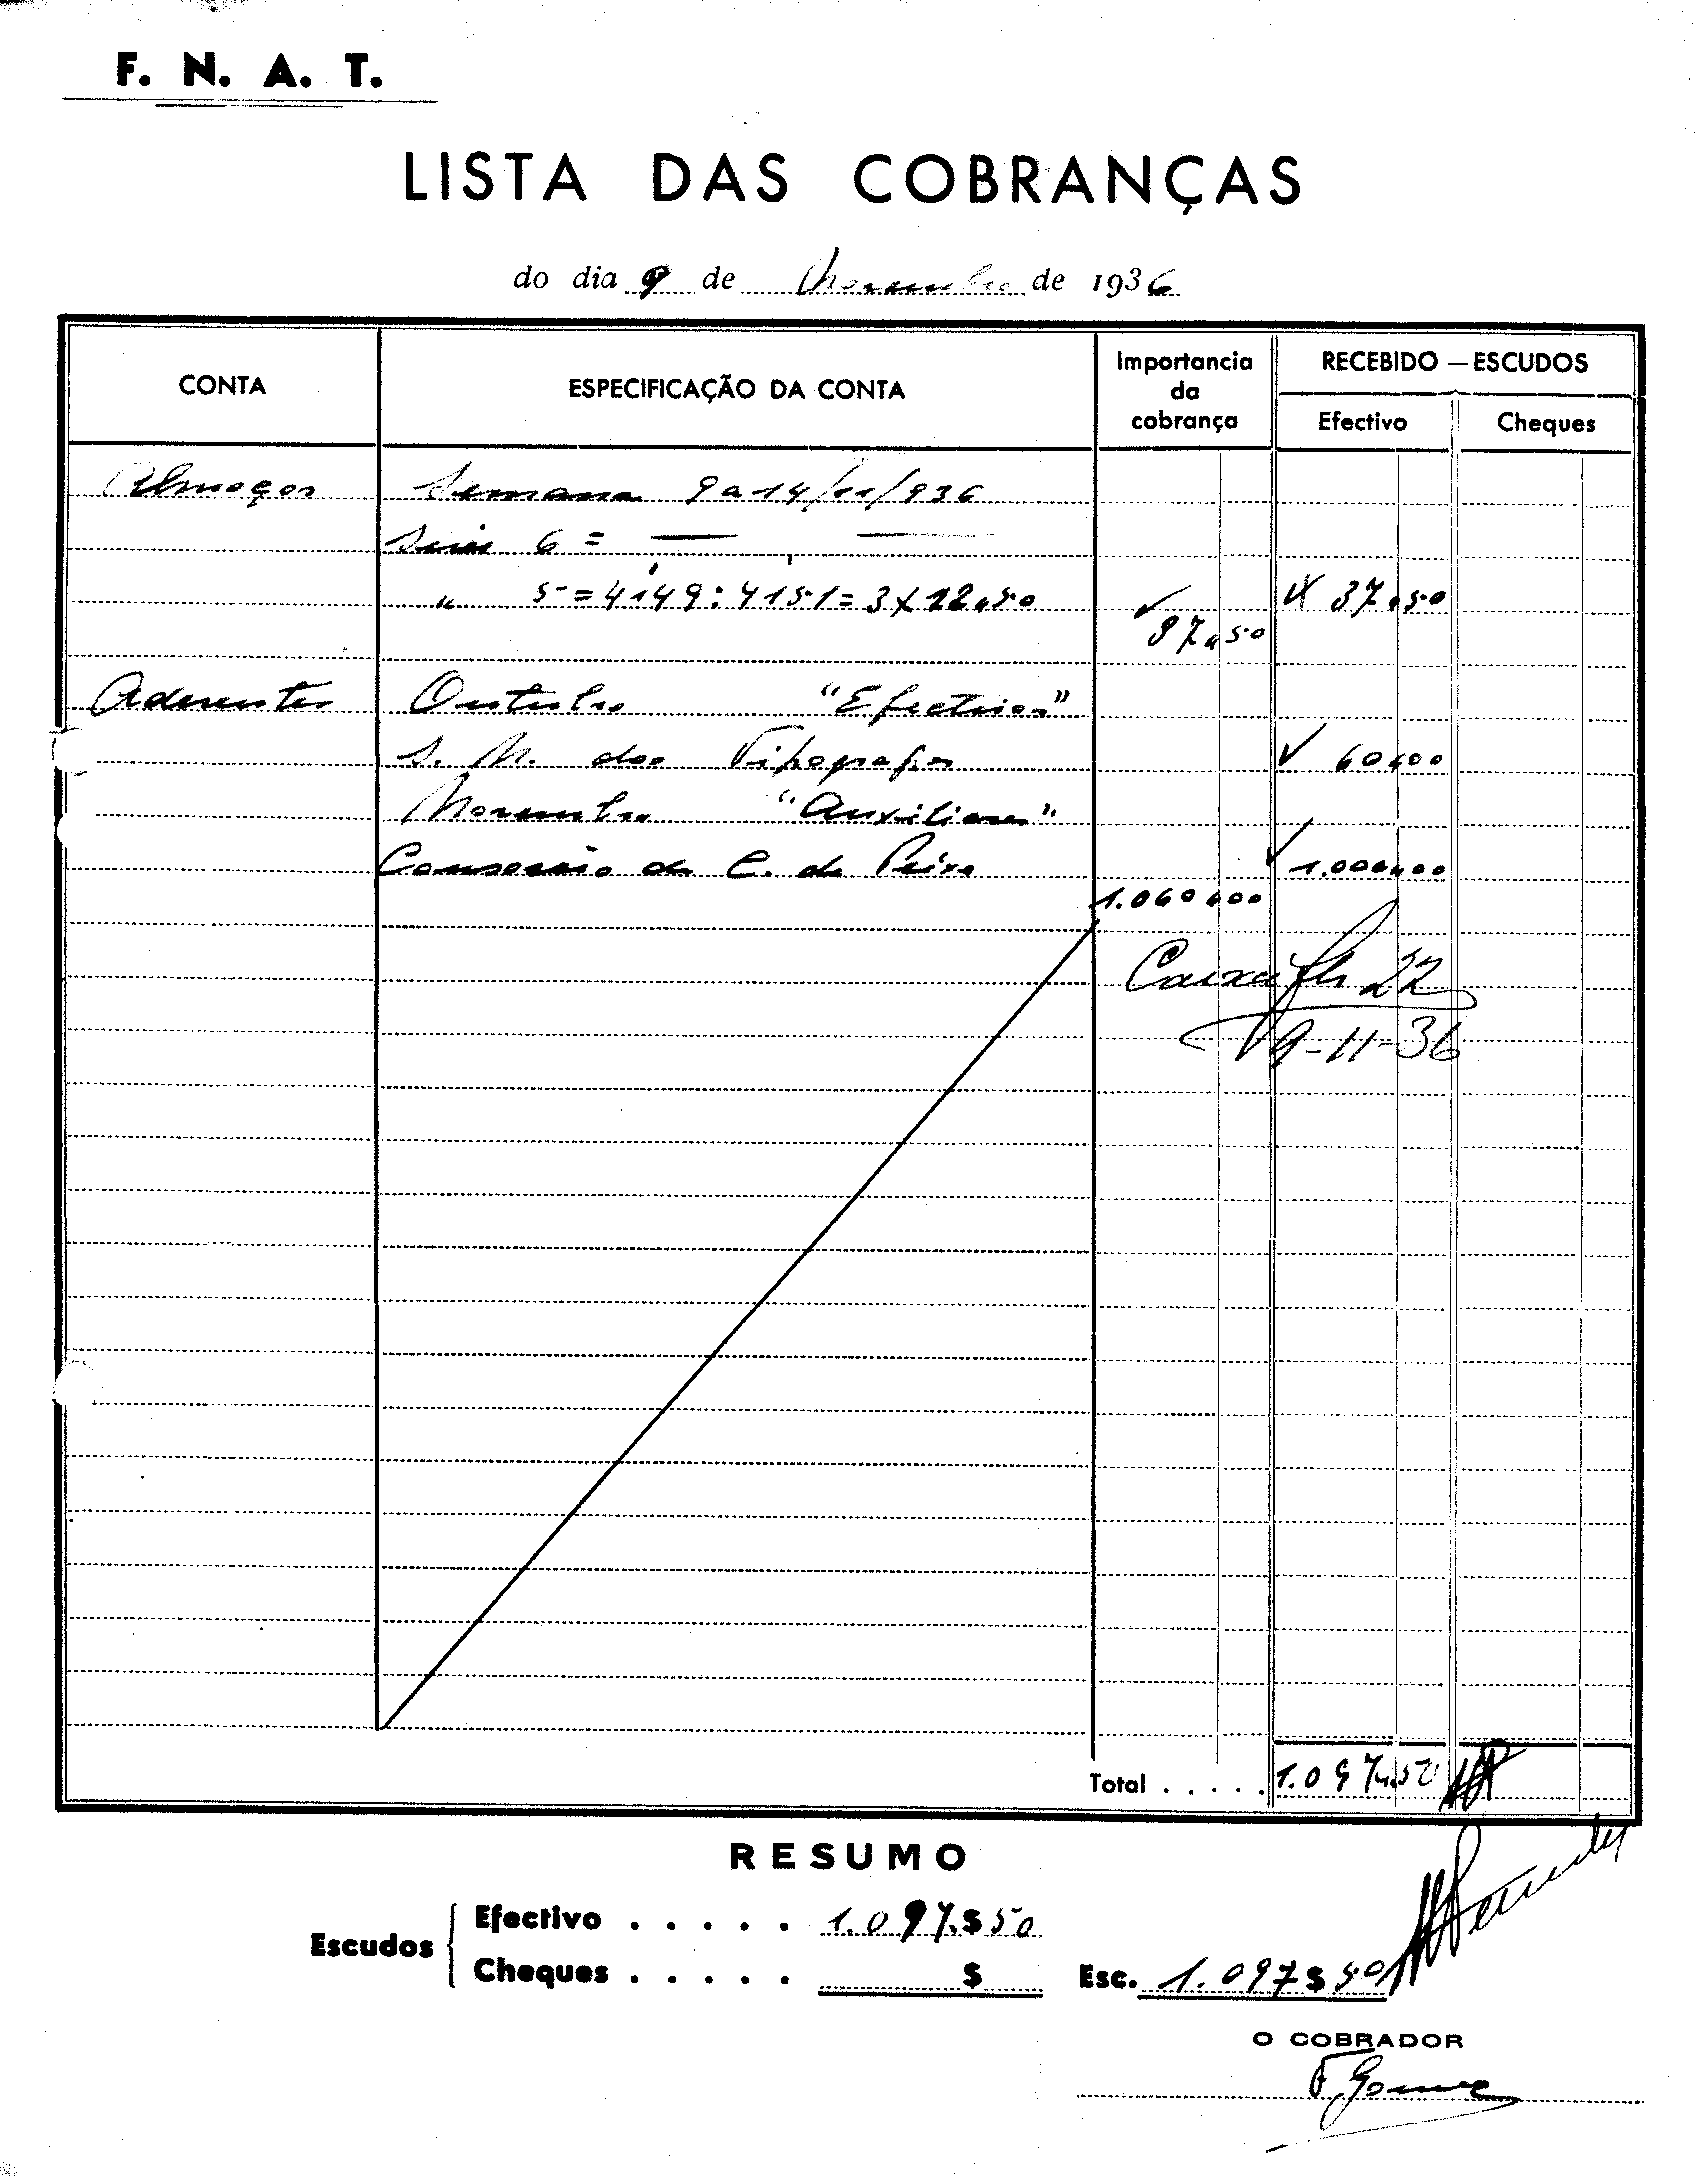 F. N. A. T.
LISTA DAS COBRANÇAS
do dia 9 de Novembro de 1936
CONTA
ESPECIFICAÇÃO DA CONTA
Importancia da cobrança
RECEBIDO — ESCUDOS
Efectivo
Cheques
Almoços Semana 9 a 14/11/936
Série 6 = — —
" 5 = 4149 : 4151 = 3 x 12,50 37,50
37,50
Aderentes Outubro "Efectivos"
S. N. dos Tipografos 60$00
Novembro "Auxiliares"
Consorcio de C. de Peixe 1.000$00
1.060$00
Caixa fls 22
9-11-36
Total . . . . . 1.097$50
RESUMO
Escudos
Efectivo . . . . . 1.097$50
Cheques . . . . . $
Esc. 1.097$50
O COBRADOR
F. Gomes